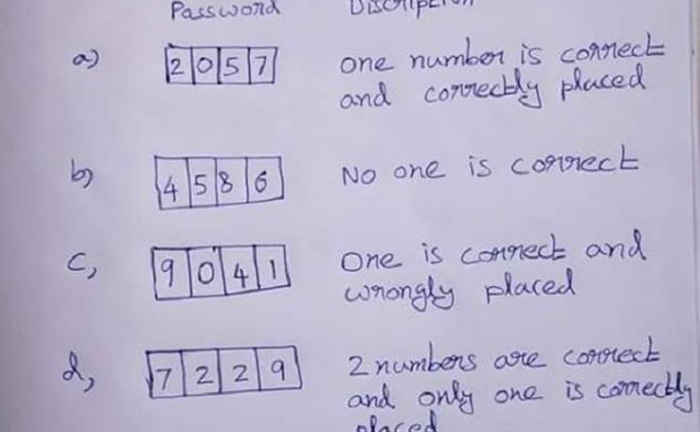 Password Discription
a) 2 0 5 7 one number is correct
and correctly placed
b) 4 5 8 6 No one is correct
c, 9 0 4 1 One is correct and
wrongly placed
d, 7 2 2 9 2 numbers are correct
and only one is correctly
placed